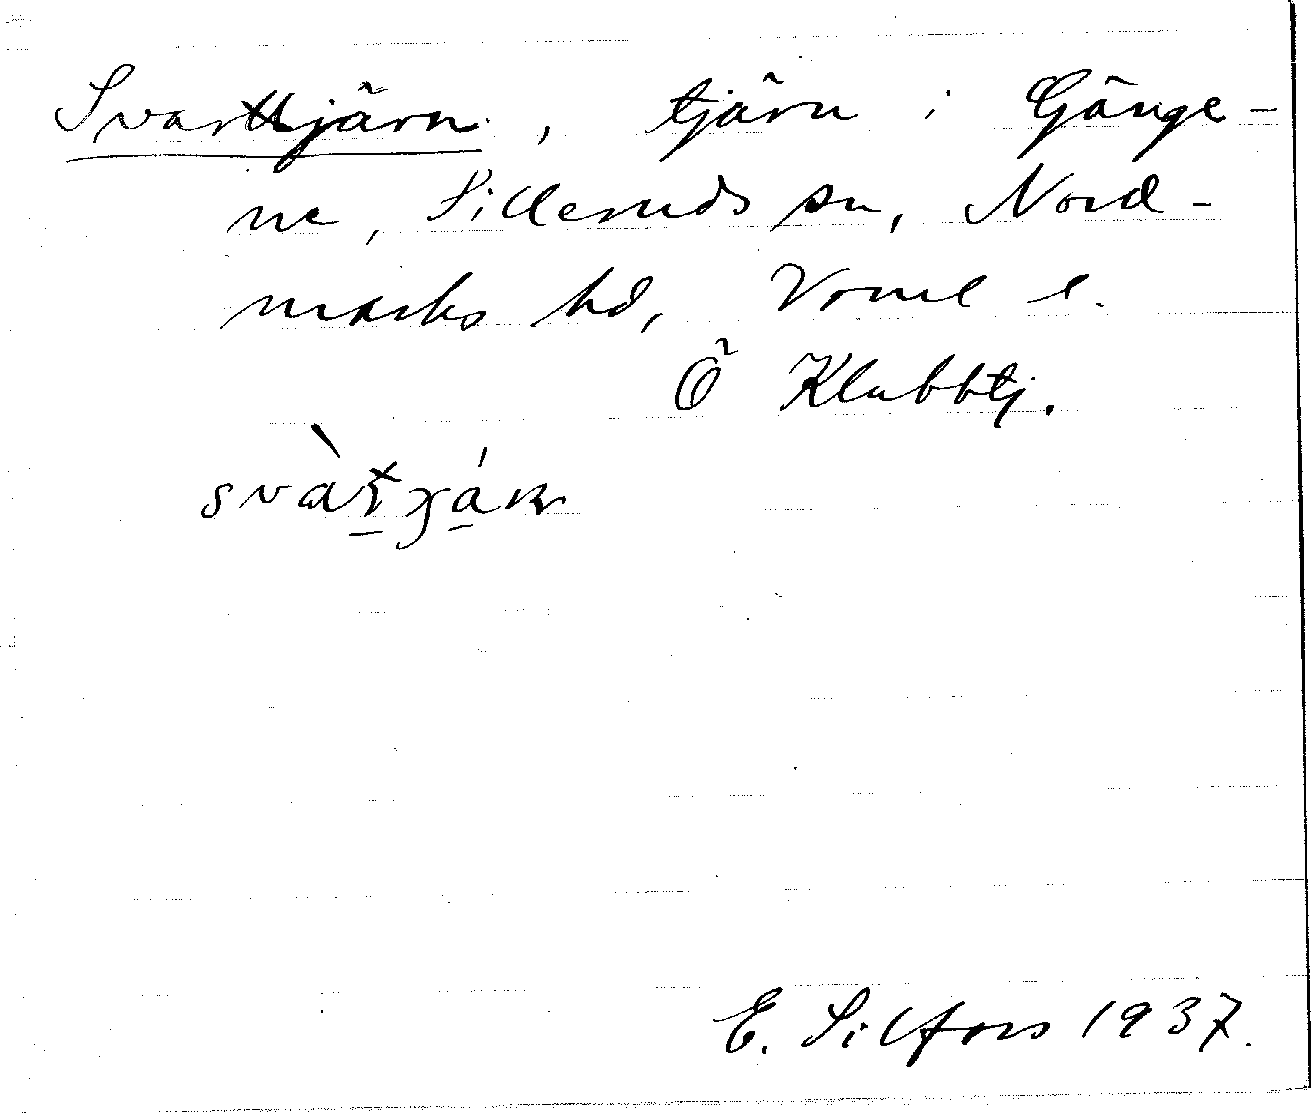 Svarttjärn, tjärn i Gänge-
ne, Silleruds sn, Nord-
marks hd, Vrml l.
Ö Klubbtj.
E. Silfors 1937.